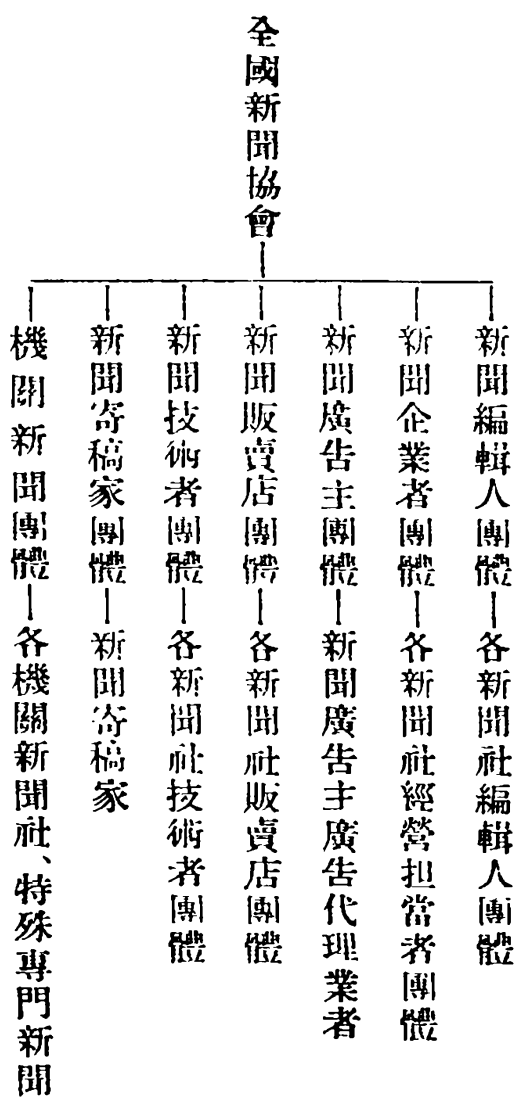 全國新聞協會
新聞編輯人團體―各新聞社編輯人團體
新聞企業者團體―各新聞社經營担當者團體
新聞廣告主團體―新聞廣告主廣告代理業者
新聞販賣店團體―各新聞社販賣店團體
新聞技術者團體―各新聞社技術者團體
新聞寄稿家團體―新聞寄稿家
機關新聞團體―各機關新聞社、特殊專門新聞